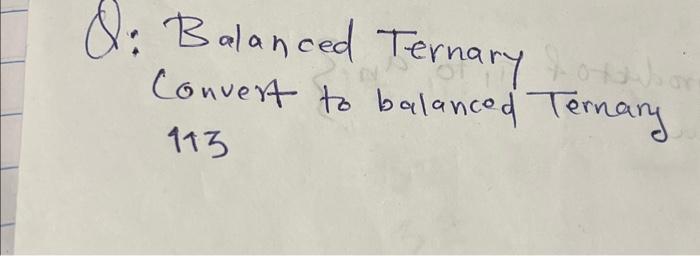 Q: Balanced Ternary
Convert to balanced Ternary
113